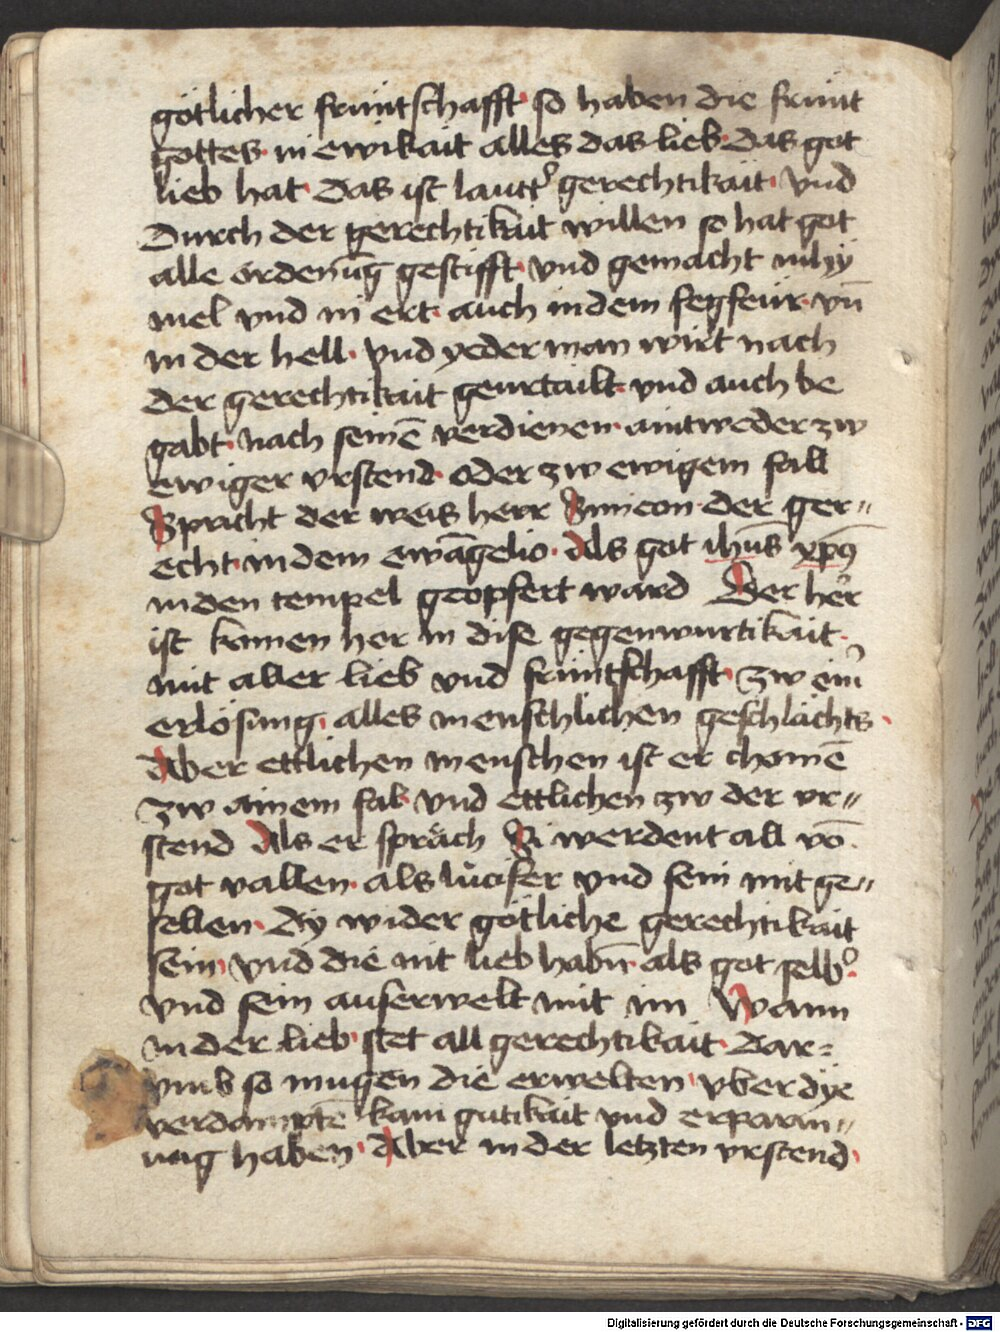 götlicher frúntschafft· so haben die frúnt
gottes· in ewikait alles das lieb· das got
lieb hat· das ist lautt᷑ gerechtikait· vnd
Durch der gerechtikait willen so hat got
alle ordenūg gestifft· vnd gemacht in hÿ
mel vnd in ert· auch in dem fegfeúr· vn̄
in der hell· vnd yederman wirt nach
der gerechtikait geurtailt· vnd auch be
gabt· nach seinē verdienen· aintweder zw
ewiger vrstend· oder zw ewigem fall
Spricht der weis herr Simeon· der ger〃
echt· in dem ewāgelio· Als got ih̄us xp̄ꝯ
in den tempel geopfert ward Der her᷑
ist komen her in dise gegenwurtikait·
mit aller lieb vnd frúntschafft· zw ein᷑
erlösung· alles menschlichen geschlächts·
Aber ettlichen menschen ist er chomē
zw ainem fal· vnd ettlichen zw der vr〃
stend Als er spräch Si werdent all vō
got vallen· als lucifer vnd sein mit ge〃
sellen· dÿ wider götliche gerechtikait
sein· vnd die nit lieb habn̄· als got selb᷑·
vnd sein auserwelt mit im Wann
in der lieb· stet all gerechtikait· dar〃
vmb so mugen die erwelten· vber dÿe
verdampte᷑n kain gutikait vnd erparm〃
ung haben· Aber in der letzten vrstend·
Digitalisierung gefördert durch die Deutsche Forschungsgemeinschaft - DFG